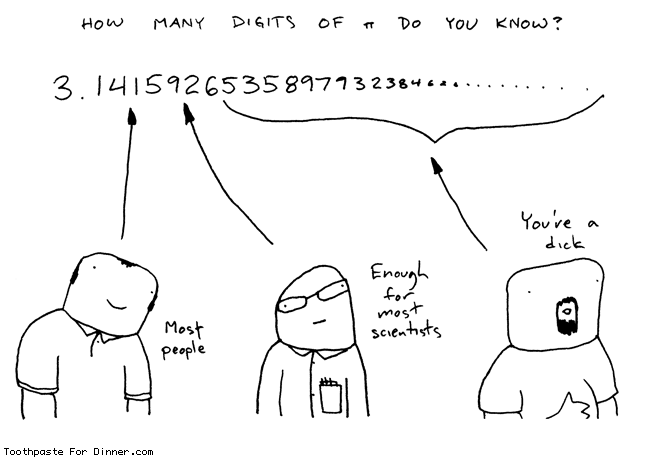 HOW MANY DIGITS OF π DO YOU KNOW?
3.141592653589793238462.........
You've a
dick
Enough
for
most
scientists
Most
people
Toothpaste For Dinner.com